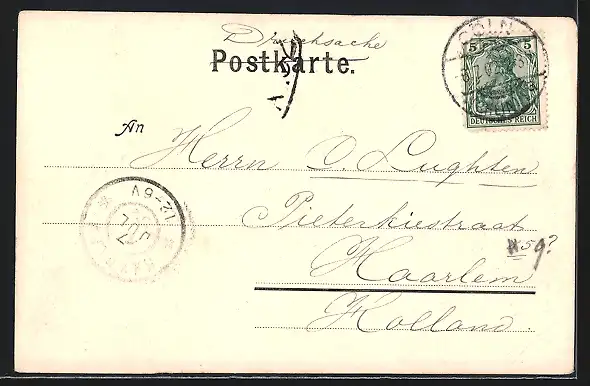 Drucksache
Postkarte.
CÖLN
5 5
DEUTSCHES REICH
An
Herrn O. Lughten
Pieterkiestraat
Haarlem
Holland.
12-6V
7 JUL